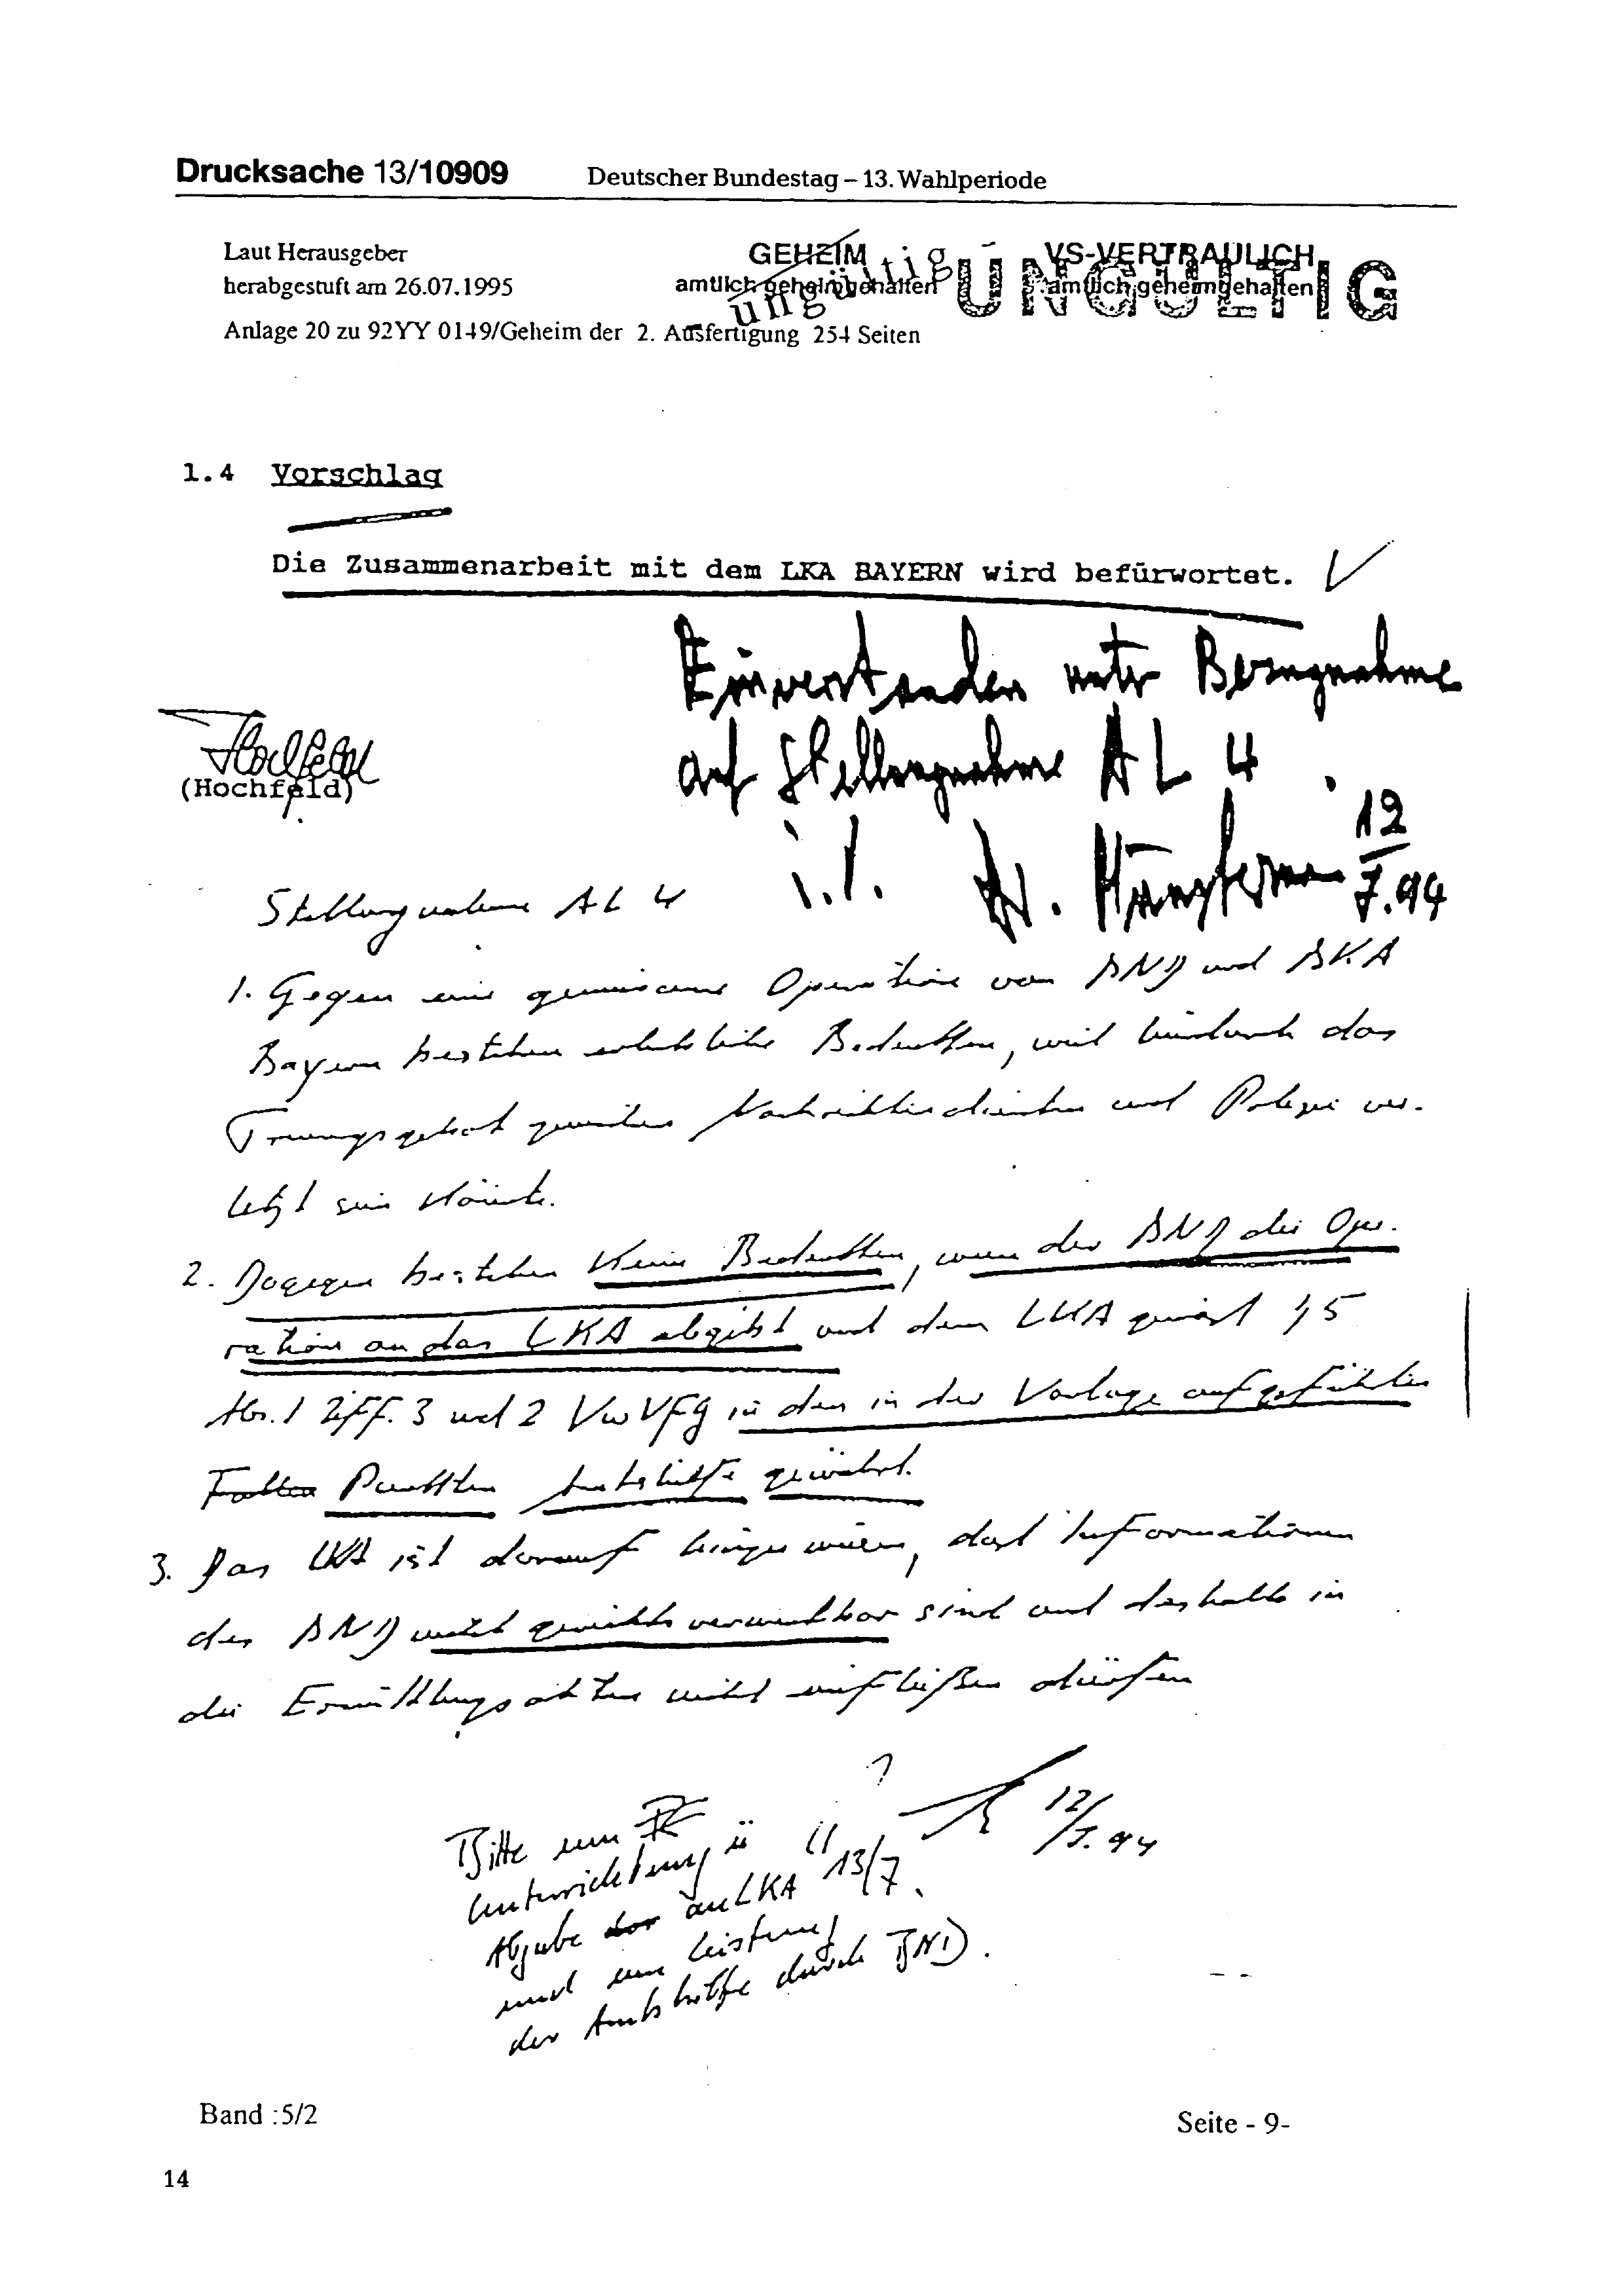 Drucksache 13/10909 Deutscher Bundestag – 13. Wahlperiode
Laut Herausgeber
herabgestuft am 26.07.1995
GEHEIM
amtlich geheimgehalten
ungültig
VS-VERTRAULICH
amtlich geheimgehalten
UNGÜLTIG
Anlage 20 zu 92YY 0149/Geheim der 2. Ausfertigung 254 Seiten
1.4 Vorschlag
Die Zusammenarbeit mit dem LKA BAYERN wird befürwortet.
Einverstanden unter Bezugnahme
auf Stellungnahme AL 4.
(Hochfeld)
12
7.94
Stellungnahme AL 4
1. Gegen eine gemeinsame Operation von BND und BKA
Bayern bestehen erhebliche Bedenken, weil hierdurch das
Trennungsgebot zwischen Nachrichtendiensten und Polizei ver-
letzt sein könnte.
2. Dagegen bestehen keine Bedenken, wenn der BND die Ope-
ration an das LKA abgibt und dem LKA gemäß § 5
Abs. 1 Ziff. 3 und 2 VwVfG in den in der Vorlage aufgeführten
Fällen Punkten Amtshilfe gewährt.
3. Das LKA ist darauf hinzuweisen, daß Informationen
des BND nicht gerichtsverwertbar sind und deshalb in
die Ermittlungsakten nicht einfließen dürfen
12/7.94
Bitte um
Unterrichtung ü
Abgabe an LKA 13/7.
und um Leistung
der Amtshilfe durch BND.
Band :5/2
Seite - 9-
14